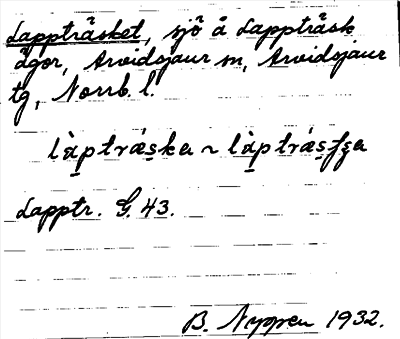 Lappträsket, sjö å Lappträsk
ägor, Arvidsjaur sn, Arvidsjaur
tg, Norrb. l.
làptráska ~ làptrásʃʒa
Lapptr. G. 43.
B. Nyppen 1932.